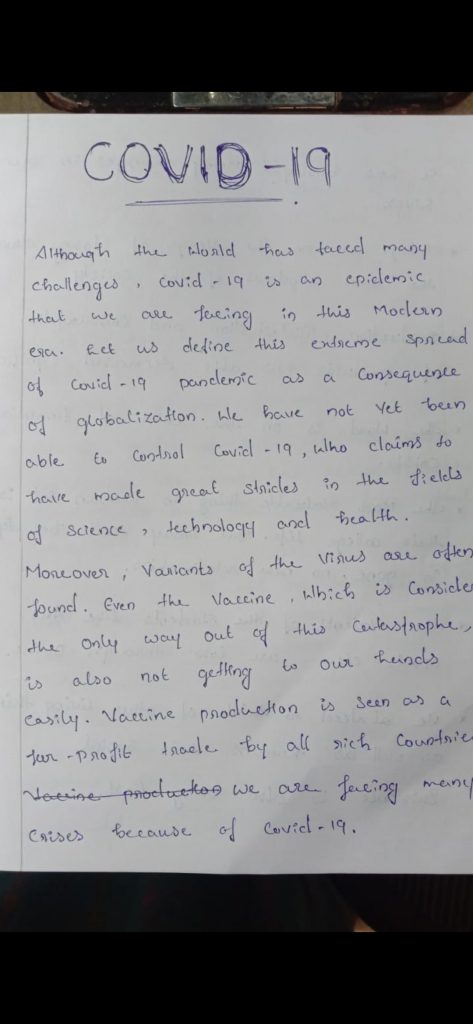 COVID-19
Although the World has faced many
challenges, covid-19 is an epidemic
that we are facing in this Modern
era. Let us define this extreme spread
of Covid-19 pandemic as a Consequence
of globalization. We have not yet been
able to control Covid-19, who claims to
have made great strides in the fields
of science, technology and health.
Moreover, Variants of the Virus are often
found. Even the Vaccine, Which is Conside
the only way out of this Catastrophe,
is also not getting to our hands
easily. Vaccine production is seen as a
for-profit trade by all rich Countrie
Vaccine production We are facing many
Crises because of Covid-19.